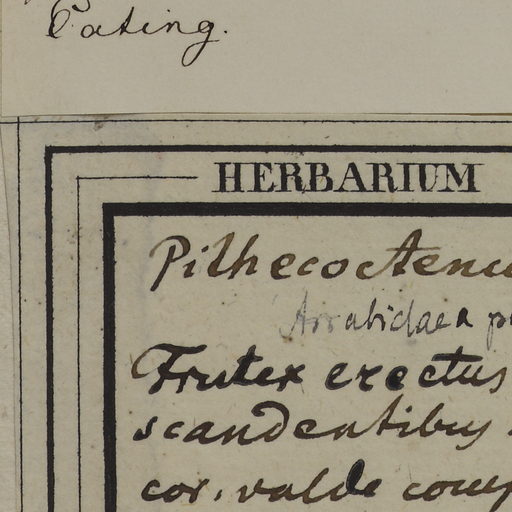 Eating.
HERBARIUM
Pithecoctenu
Arrabidaea p
Frutex erectus
scandentibus
cor. valde comp